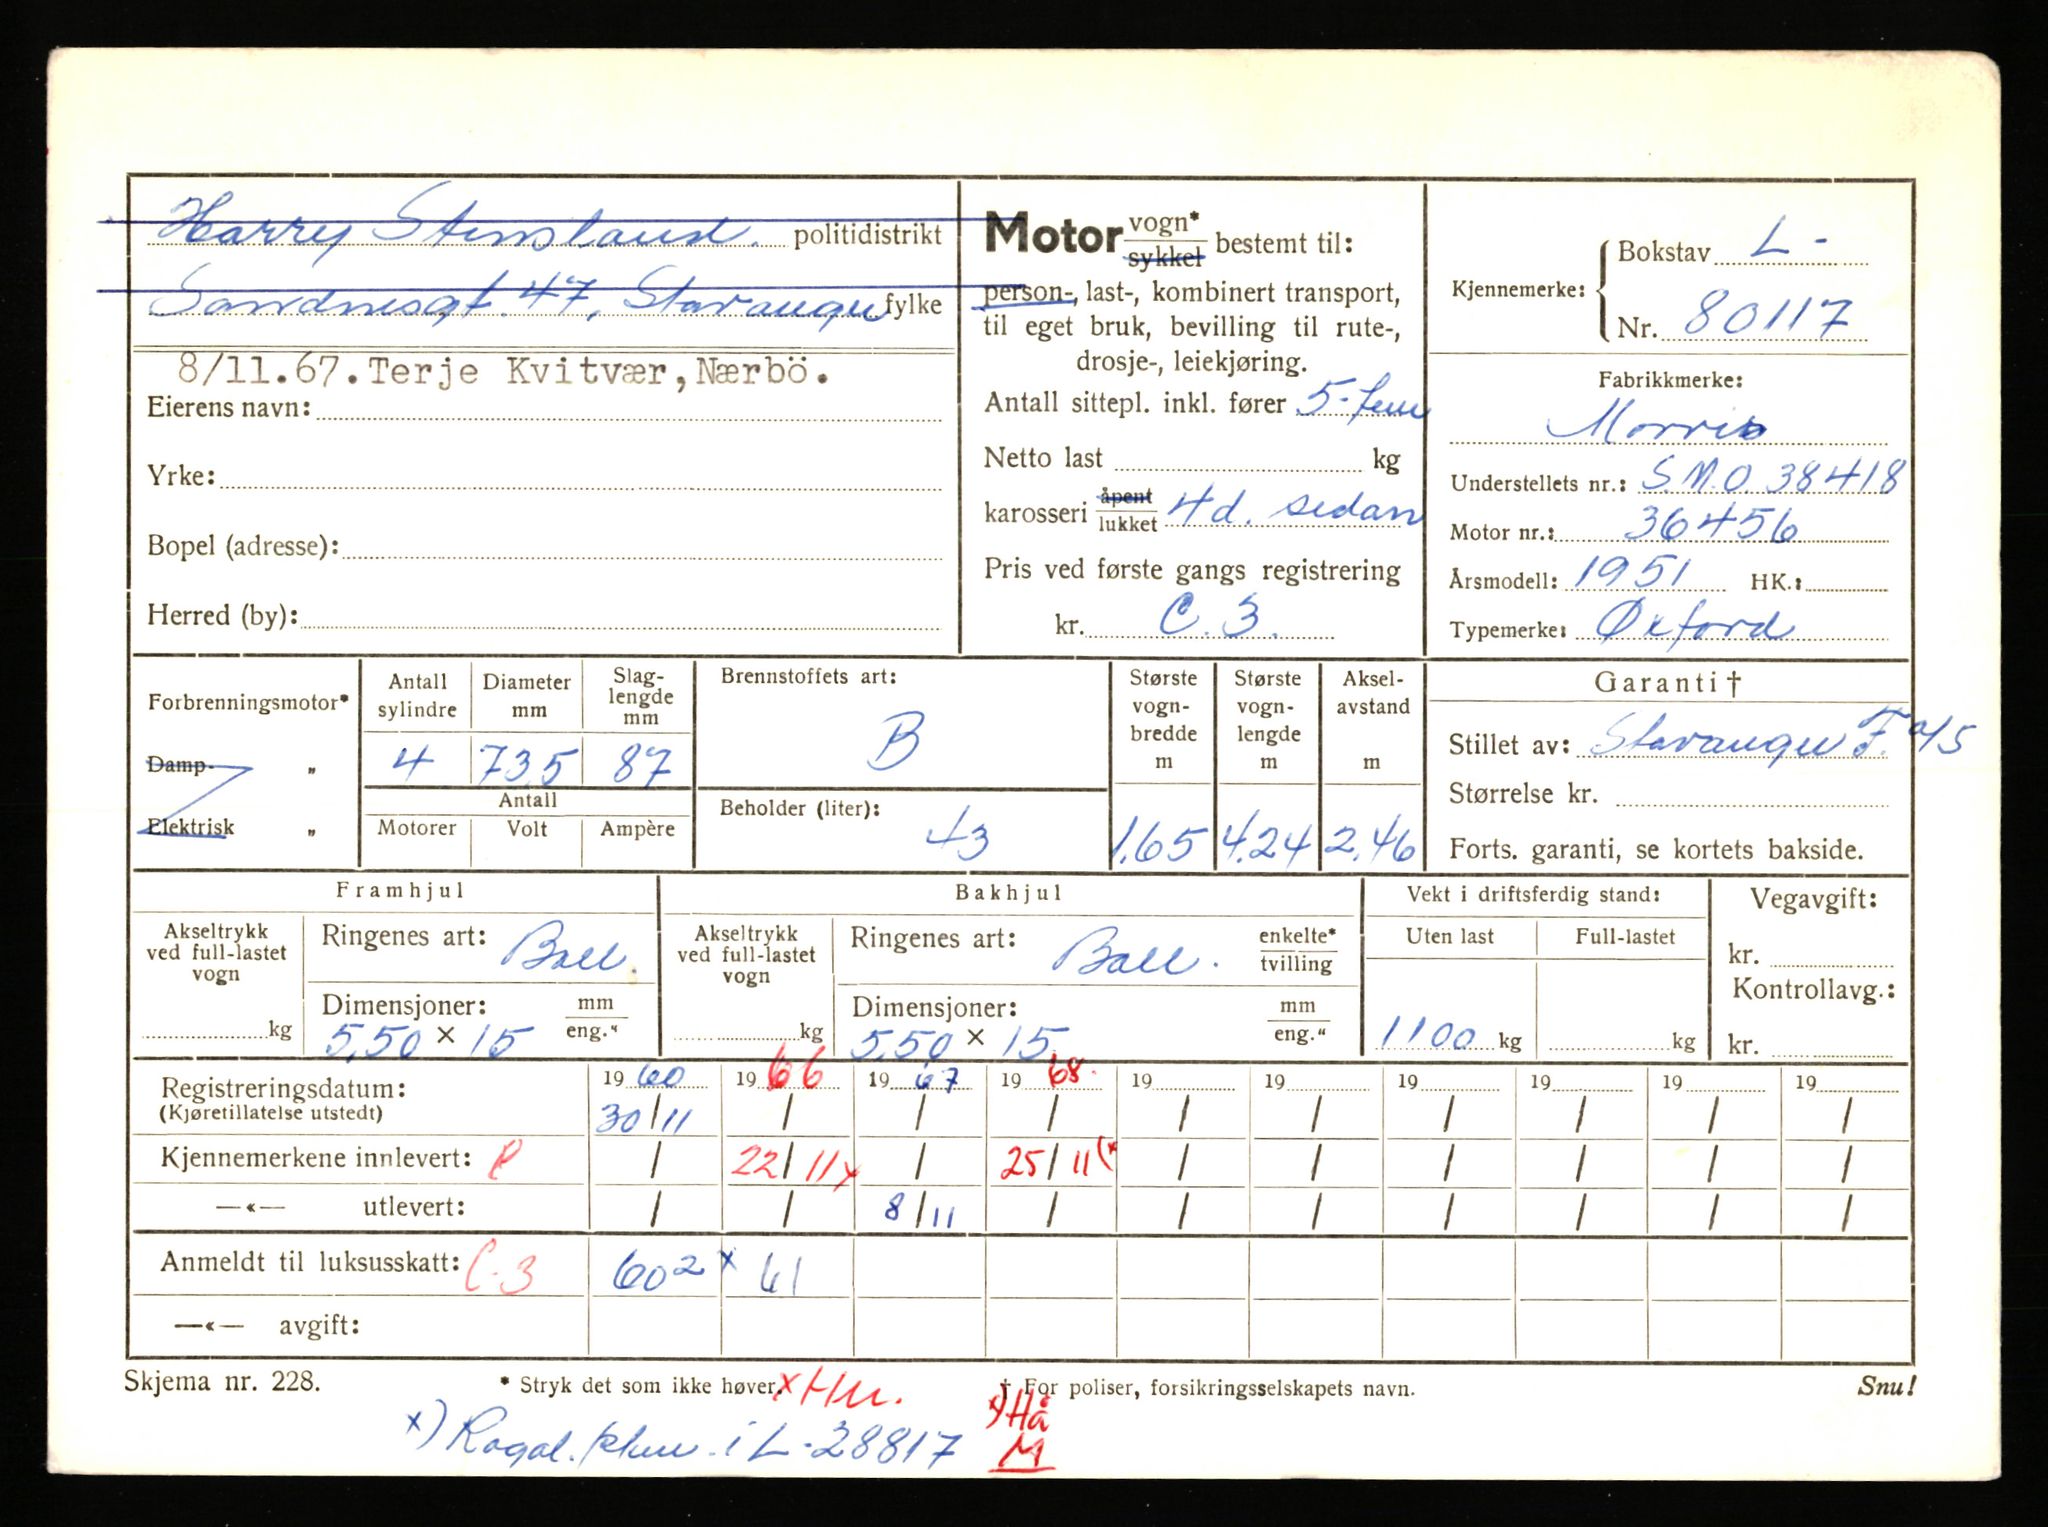 Harry Stensland politidistrikt
Sandnesgt. 47, Stavanger fylke
8/11.67. Terje Kvitvær, Nærbö.
Eierens navn:
Yrke:
Bopel (adresse):
Herred (by):
Motor vogn* sykkel bestemt til:
person-, last-, kombinert transport,
til eget bruk, bevilling til rute-,
drosje-, leiekjøring.
Antall sittepl. inkl. fører 5-fem
Netto last kg
karosseri åpent lukket 4d. sedan
Pris ved første gangs registrering
kr. C. 3.
Kjennemerke: Bokstav L -
Nr. 80117
Fabrikkmerke:
Morris
Understellets nr.: S.M.O. 38418
Motor nr.: 36456
Årsmodell: 1951 HK.:
Typemerke: Oxford
Forbrenningsmotor*
Damp- "
Elektrisk "
Antall sylindre Diameter mm Slag-lengde mm
4 73,5 87
Antall
Motorer Volt Ampère
Brennstoffets art:
B
Beholder (liter):
43
Største vogn-bredde m Største vogn-lengde m Aksel-avstand m
1,65 4,24 2,46
Garanti †
Stillet av: Stavanger F. a/s
Størrelse kr.
Forts. garanti, se kortets bakside.
Framhjul
Akseltrykk ved full-lastet vogn kg
Ringenes art: Ball.
Dimensjoner: mm eng."
5,50 × 15
Bakhjul
Akseltrykk ved full-lastet vogn kg
Ringenes art: Ball. enkelte* tvilling
Dimensjoner: mm eng."
5,50 × 15
Vekt i driftsferdig stand:
Uten last Full-lastet
1100 kg kg
Vegavgift:
kr.
Kontrollavg.:
kr.
Registreringsdatum: 19 60 19 66 19 67 19 68. 19 19 19 19 19 19
(Kjøretillatelse utstedt) 30/11 / / / / / / / / /
Kjennemerkene innlevert: / 22/11 x / 25/11 (x / / / / / /
—«— utlevert: / / 8/11 / / / / / / /
Anmeldt til luksusskatt: C-3 60 2 x 61
—«— avgift:
Skjema nr. 228. * Stryk det som ikke høver. x Hm. † For poliser, forsikringsselskapets navn. Snu!
x) Hå
x) Rogal. i L-28817 M